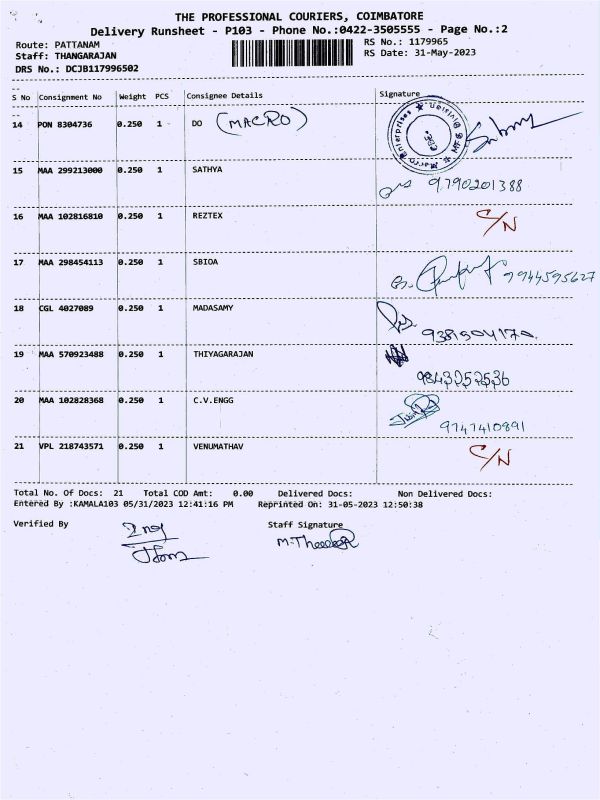 THE PROFESSIONAL COURIERS, COIMBATORE
Delivery Runsheet - P103 - Phone No.:0422-3505555 - Page No.:2
Route: PATTANAM RS No.: 1179965
Staff: THANGARAJAN RS Date: 31-May-2023
DRS No.: DCJB117996502
S No Consignment No Weight PCS Consignee Details Signature
14 PON 8304736 0.250 1 DO (MACRO)
15 MAA 299213000 0.250 1 SATHYA 9790201388
16 MAA 102816810 0.250 1 REZTEX C/N
17 MAA 298454113 0.250 1 SBIOA 9944595627
18 CGL 4027089 0.250 1 MADASAMY 9381504170
19 MAA 570923488 0.250 1 THIYAGARAJAN 9843252536
20 MAA 102828368 0.250 1 C.V.ENGG 9747410891
21 VPL 218743571 0.250 1 VENUMATHAV C/N
Total No. Of Docs: 21 Total COD Amt: 0.00 Delivered Docs: Non Delivered Docs:
Entered By :KAMALA103 05/31/2023 12:41:16 PM Reprinted On: 31-05-2023 12:50:38
Verified By Staff Signature